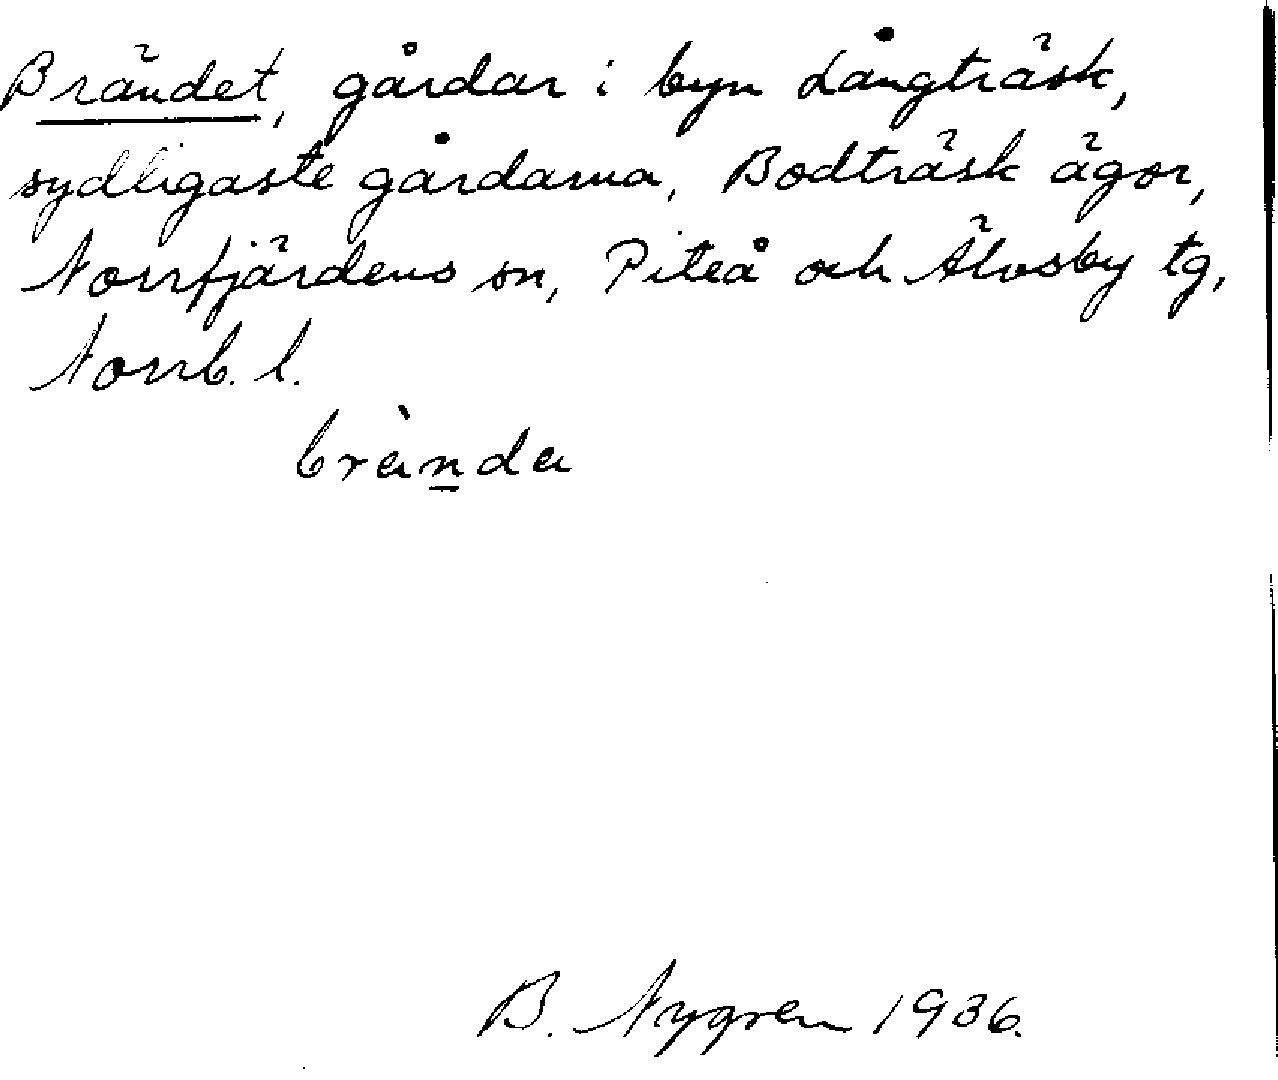 Brändet, gårdar i byn Långträsk,
sydligaste gårdarna, Bodträsk ägor,
Norrfjärdens sn, Piteå och Älvsby tg,
Norrb. l.
brànda
B. Nygren 1936.